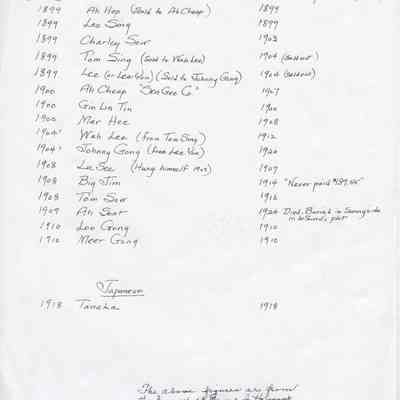 1899 Ah Hop (Sold to Ah Cheap) 1899
1899 Leo Sing 1899
1899 Charley Sow 1903
1899 Tom Sing (Sold to Wah Lee) 1904 (Sold out)
1899 Lee (or Lee Yow) (Sold to Johnny Gong) 1904 (Sold out)
1900 Ah Cheap "Sen Gee Co." 1907
1900 Gin Lin Tin 1900
1900 Mar Hee 1908
1904 Wah Lee (from Tom Sing) 1912
1904 Johnny Gong (from Lee Yow) 1920
1908 Lu See (Hung himself 1907) 1907
1908 Big Jim 1914 "Never paid
1908 Tom Sow 1912
1909 Ah Seat 1920 Died. Buried in Sunnyside
in plot
1910 Lon Gong 1910
1910 Meer Gong 1910
Japanese
1918 Tanaka 1918
The above figures are from